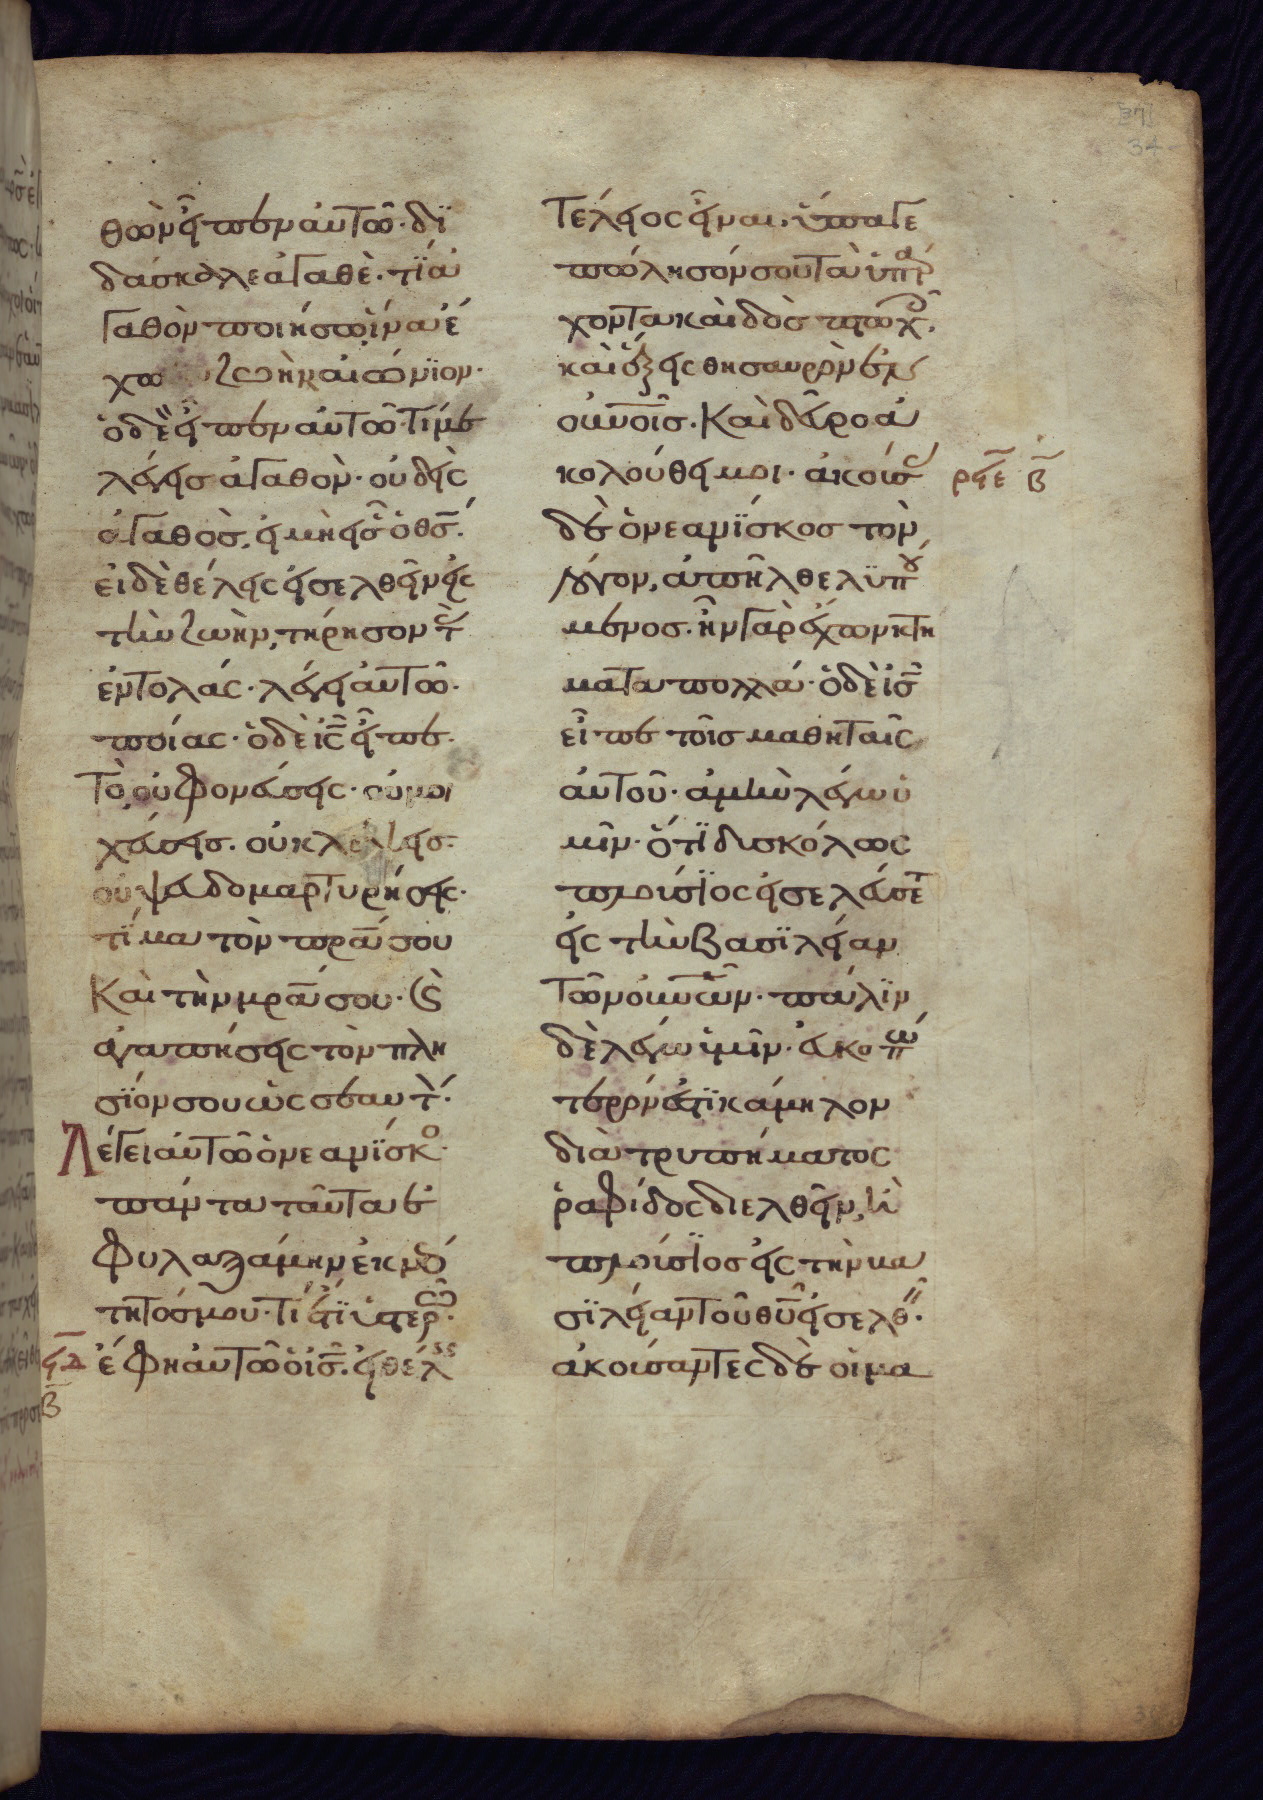 θὼν εἶπεν αὐτῶ· δϊ
δάσκαλε ἀγαθὲ· τί ἀ
γαθὸν ποιήσω ἵνα ἔ
χω ζωὴν αἰώνϊον·
ὁ δὲ εἶπεν αὐτῶ· τί με
λέγεις ἀγαθὸν· οὐδεὶς
ἀγαθὸς, εἰ μὴ εἷς ὁ θς·
εἰ δὲ θέλεις εἰσελθεῖν εἰς
τὴν ζωὴν, τήρησον τὰς
ἐντολάς· λέγει αὐτῶ·
ποίας· ὁ δὲ ις εἶπε·
Τὸ, οὐ φονεύσεις· οὐ μοι
χεύσεις· οὐ κλέψεις·
οὐ ψευδομαρτυρήσεις·
τίμα τὸν πρα σου
Καὶ τὴν μρα σου· καὶ
ἀγαπήσεις τὸν πλη
σΐον σου ὡς σεαυτόν·
Λέγει αὐτῶ ὁ νεανΐσκος·
πάντα ταῦτα ἐ
φυλαξάμην ἐκ νεό
τητός μου· Τί ἔτι ὑστερῶ·
ἔφη αὐτῶ ὁ ις· εἰ θέλεις
Τέλειος εἶναι, ὕπαγε
πώλησόν σου τὰ ὑπάρ
χοντα καὶ δὸς πτωχοῖς,
καὶ ἕξεις θησαυρὸν ἐν
οὐνοῖς· Καὶ δεῦρο ἀ
κολούθει μοι· ἀκούσας
δὲ ὁ νεανΐσκος τὸν
λόγον, ἀπῆλθε λϋπού
μενος· ἦν γὰρ ἔχων κτή
ματα πολλά· ὁ δὲ ις
εἶπε τοῖς μαθηταῖς
αὐτοῦ· ἀμὴν λέγω ὑ
μῖν· ὅτϊ δυσκόλως
πλούσϊος εἰσελεύσεται
εἰς τὴν βασϊλείαν
Τῶν οὐνῶν· πάλϊν
δὲ λέγω ὑμῖν· εὐκοπώ
τερόν ἐστϊ κάμηλον
διὰ τρυπήματος
ῥαφίδος διελθεῖν, ἢ
πλούσϊος εἰς τὴν βα
σϊλείαν τοῦ θυ εἰσελθεῖν·
ἀκούσαντες δὲ οἱ μα
ρϟε β
ϟδ
β
34